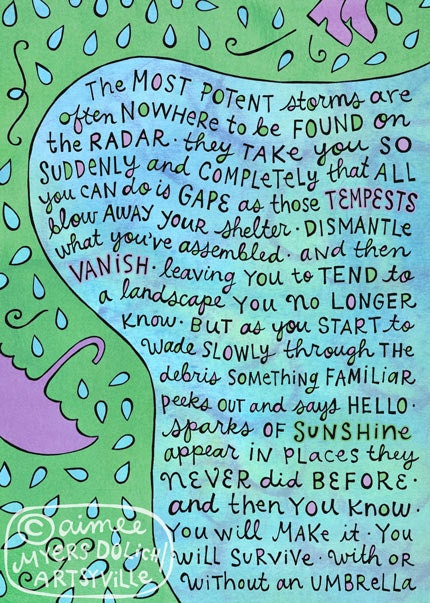 The MOST POTENT storms are
often NOWHERE to be FOUND on
the RADAR. they TAKE you SO
SUDDENLY and COMPLETELY that ALL
you CAN do is GAPE as those TEMPESTS
blow AWAY YOUR shelter. DISMANTLE
what you've assembled. and then
VANISH. leaving YOU to TEND to
a landscape YOU NO LONGER
KNOW. BUT as you START to
WADE SLOWLY through THE
debris SOMETHING FAMILIAR
peeks OUT and says HELLO.
sparks OF SUNSHINE
appear IN PLACES they
NEVER did BEFORE.
and then You KNOW.
YOU will MAKE it. YOU
will SURVIVE. with OR
WITHOUT an UMBRELLA
© aimee
MYERS DOLICH
ARTSYVILLE